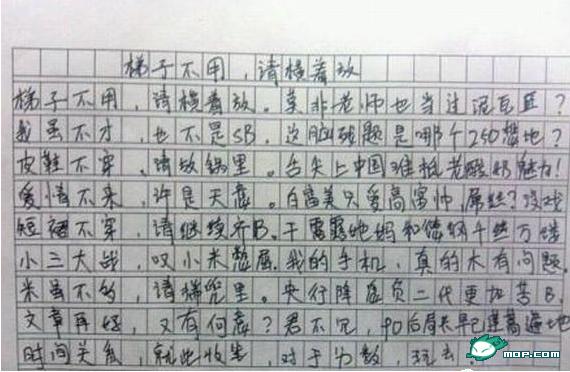 梯子不用,请横着放
梯子不用,请横着放。莫非老师也当过泥瓦匠?
我虽不才,也不是SB。这脑残题是哪个250想地?
皮鞋不穿,请放锅里。舌尖上中国难抵老酸奶魅力!
爱情不来,许是天意。白富美只爱高富帅,屌丝?没戏
短裙不穿,请继续齐B。干露露地妈和你钢千丝万缕
小三大战,叹小米憋屈。我的手机,真的木有问题。
米虽不多,请稀兜里。央行降息负二代更加苦B。
文章再好,又有何意?君不见,90后局长早已遥高遍地
时间关系,就此收笔,对于分数,玩去
MOP.COM